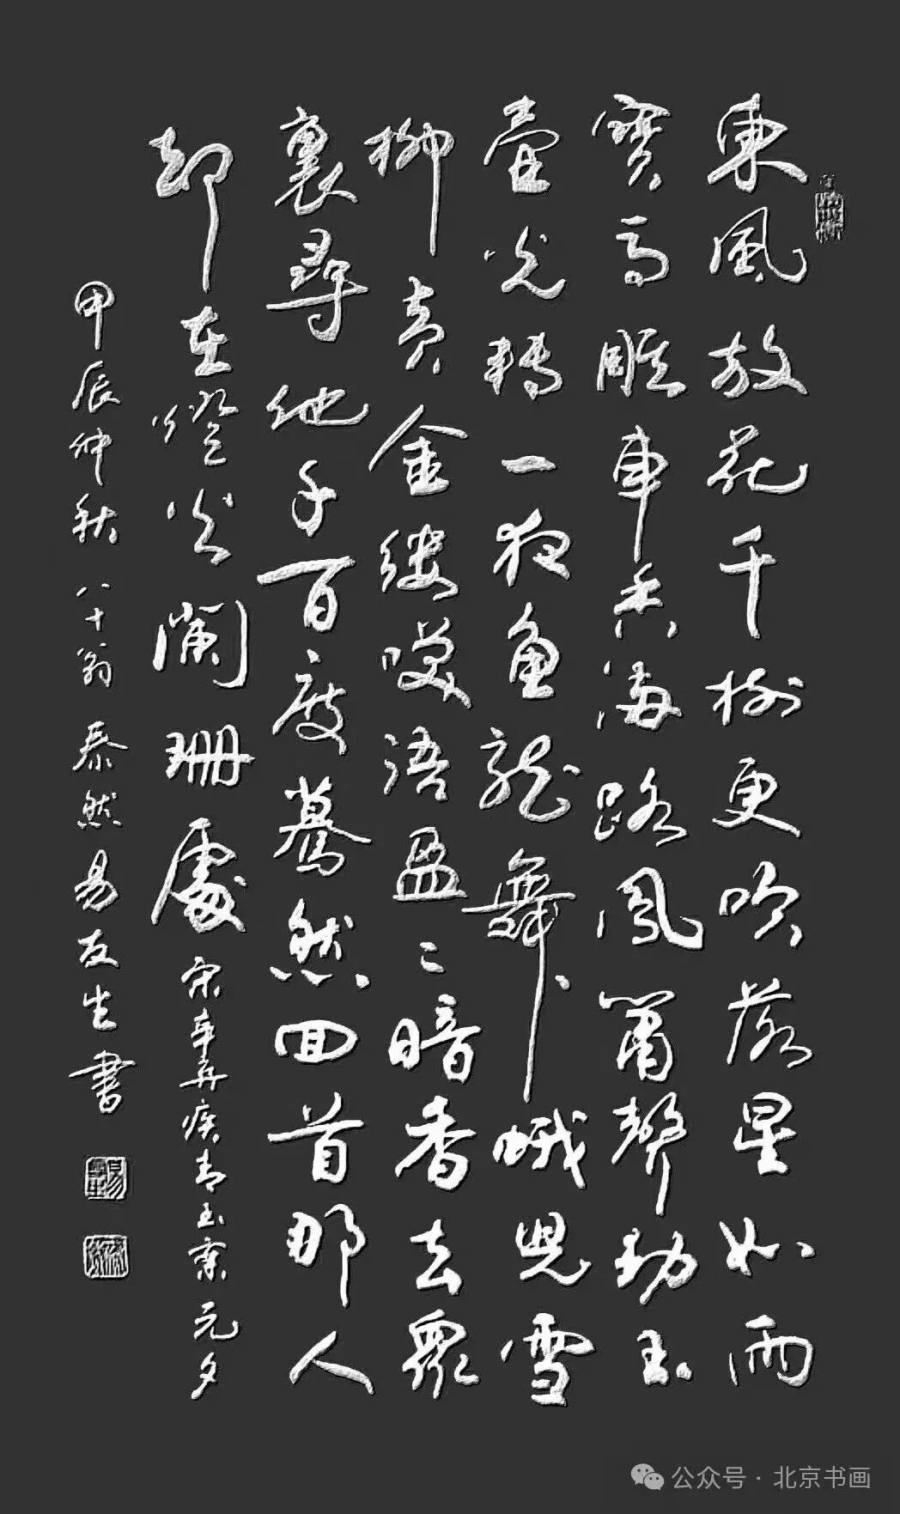 東風放花千樹更吹落星如雨
寶馬雕車香滿路鳳簫聲動玉
壺光轉一夜魚龍舞蛾兒雪
柳黃金縷笑語盈〻暗香去眾
裏尋他千百度驀然回首那人
却在燈火闌珊處
宋辛棄疾青玉案元夕
甲辰仲秋八十翁泰然易友生書
公众号·北京书画